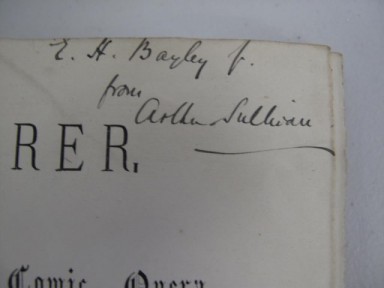 E. H. Bayley f.
from
Arthur Sullivan
RER,
Comic Opera